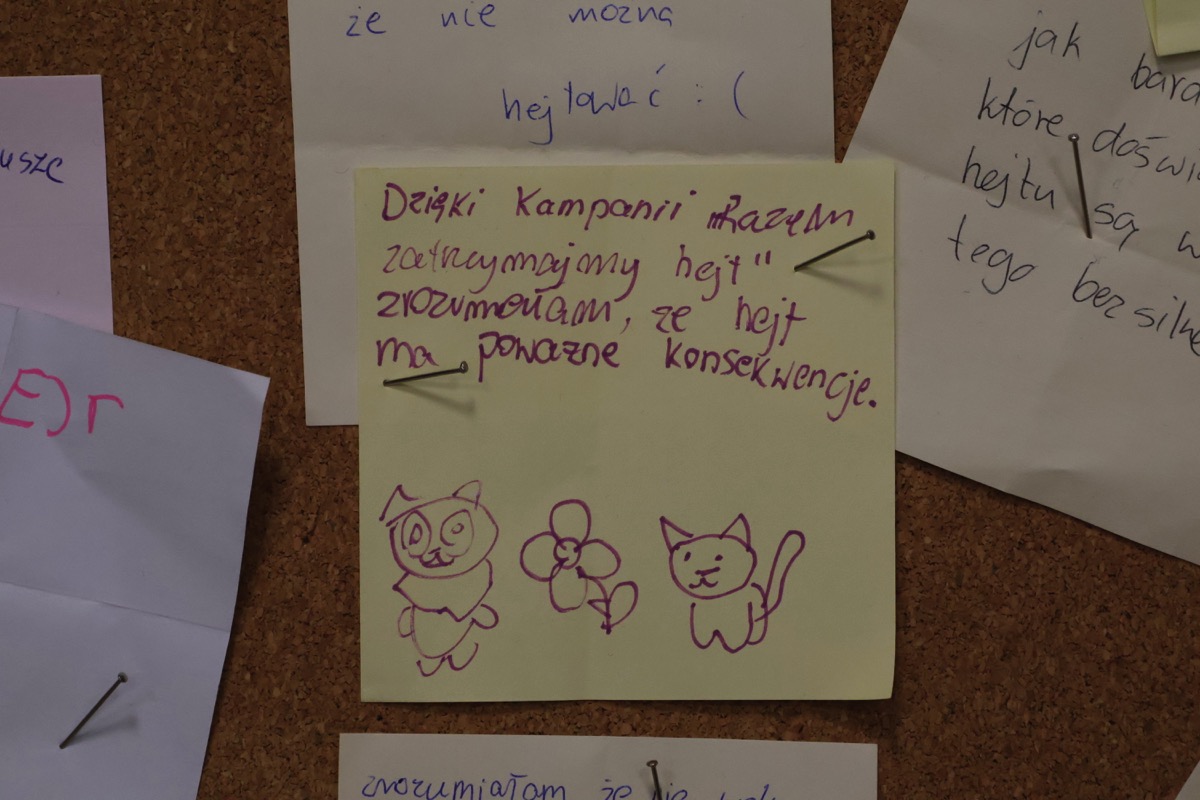 że nie można
hejtować :(
usze
E)r
Dzięki Kampanii „Razem
zatrzymajmy hejt"
zrozumiałam, że hejt
ma poważne konsekwencje.
jak bara
które doświ
hejtu są w
tego bezsilne
zrozumiałam że nie